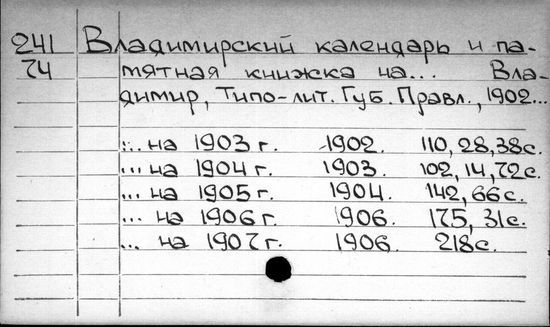 241 Владимирский календарь и па-
74 мятная книжка на... Вла-
димир, Типо-лит. Губ. Правл., 1902...
... на 1903 г. 1902. 110, 28, 38с.
... на 1904 г. 1903. 102, 14, 72с.
... на 1905 г. 1904. 142, 66с.
... на 1906 г. 1906. 175, 31с.
... на 1907 г. 1906. 218с.